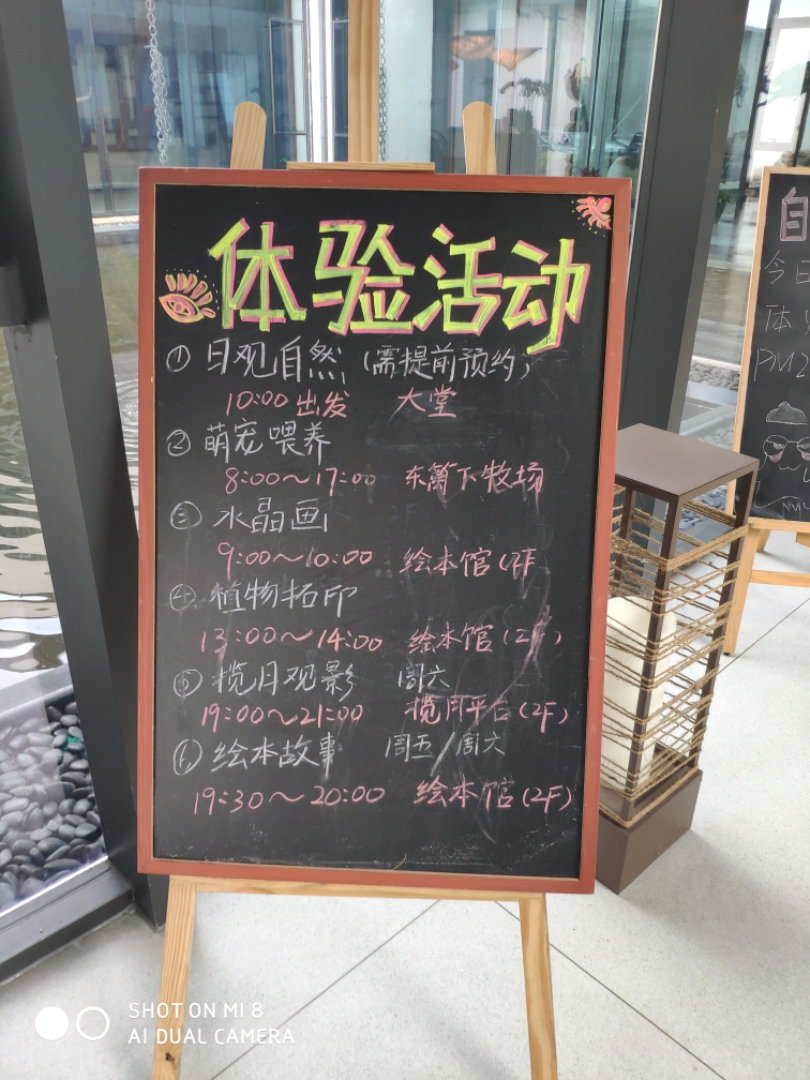 体验活动
① 日观自然 (需提前预约)
10:00 出发 大堂
② 萌宠喂养
8:00～17:00 东篱下牧场
③ 水晶画
9:00～10:00 绘本馆 (2F
④ 植物拓印
13:00～14:00 绘本馆 (2F)
⑤ 揽月观影 周六
19:00～21:00 揽月平台 (2F)
⑥ 绘本故事 周五/周六
19:30～20:00 绘本馆 (2F)
自
今日
体
PM2
SHOT ON MI 8
AI DUAL CAMERA